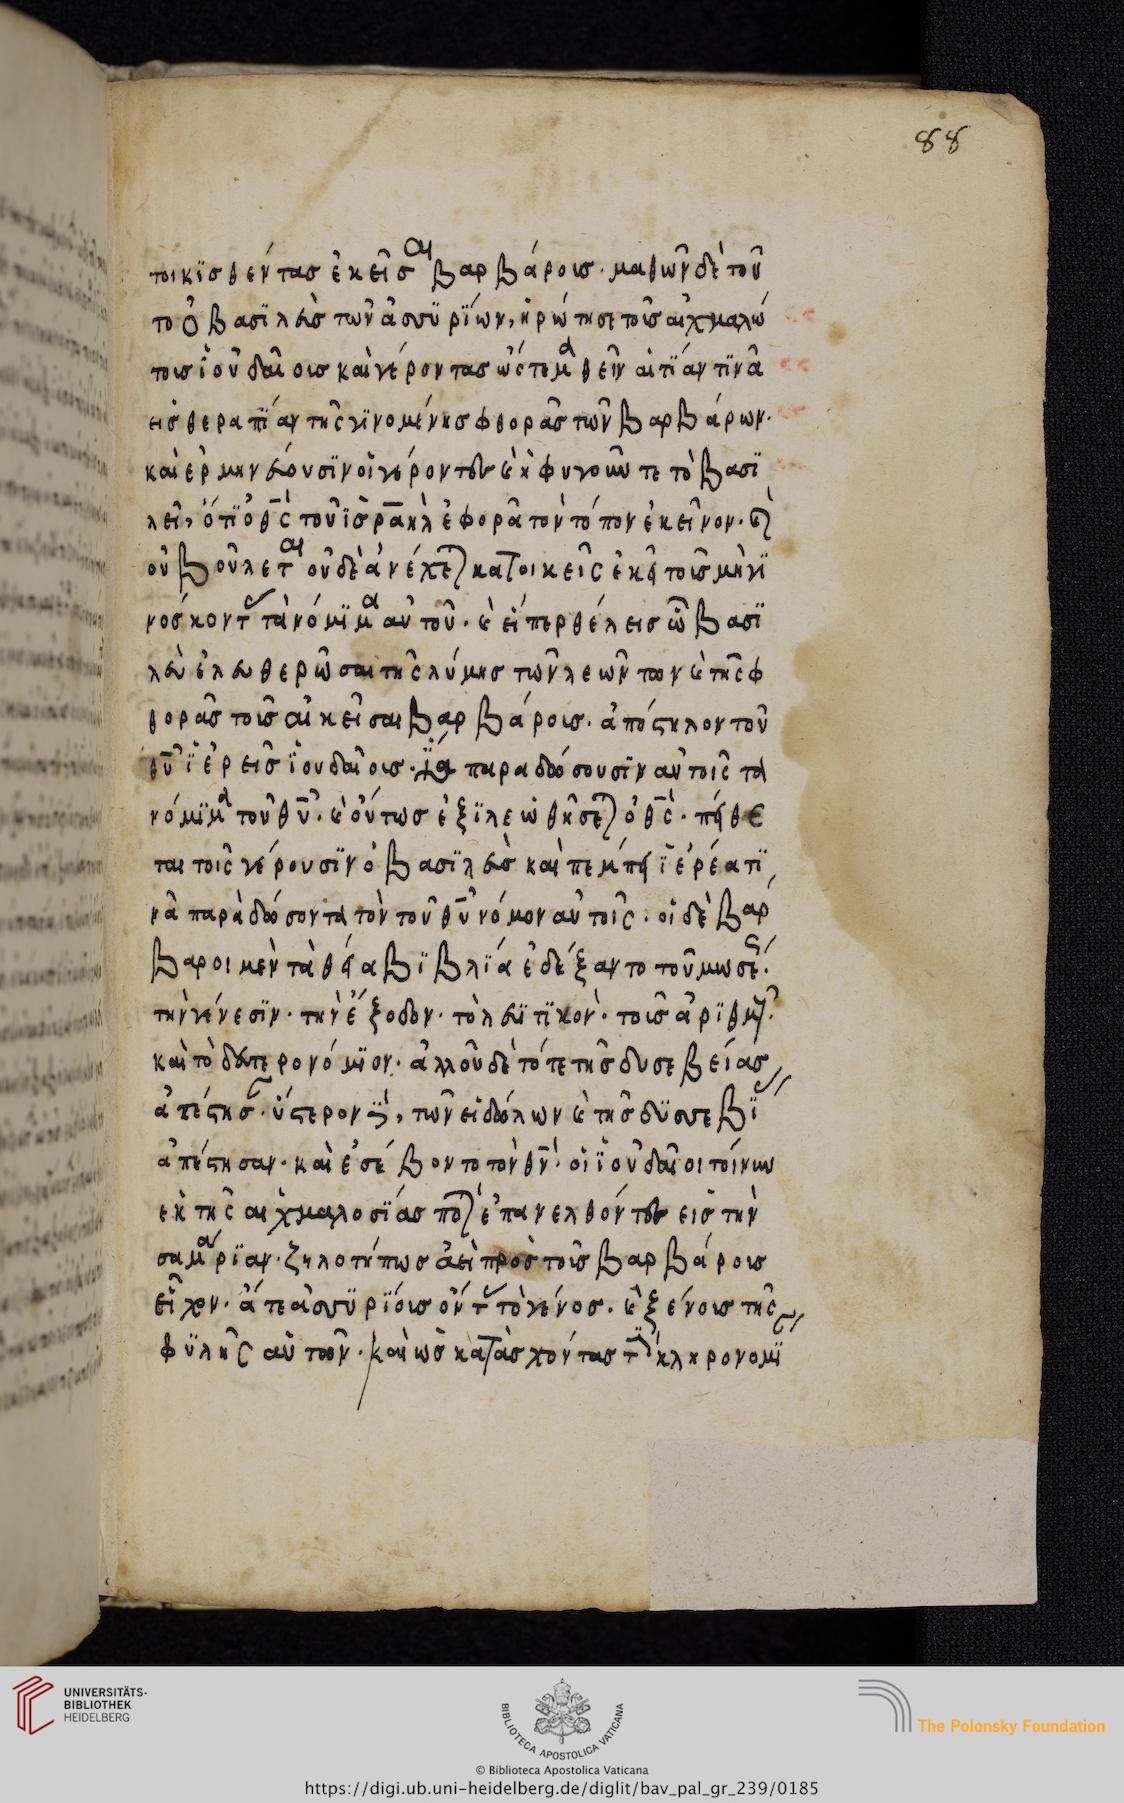 88
τοικϊσθέντας ἐκεῖσαι βαρβάροις· μαθὼν δὲ τοῦ
το ὁ βασϊλεὺς τῶν ἀσσϋρϊων, ἠρώτησε τοῖς αἰχμαλώ
τοις ϊουδαίοις καὶ γέροντας ὥστε μαθεῖν αἰτΐαν τϊνὰ
εἰς θεραπΐαν τῆς γϊνομένης φθορᾶς τῶν βαρβάρων·
καὶ ἑρμηνεύουσϊν οἱ γέροντες τὸ βασϊ
λεῖ, ὅτϊ ὁ θς τοῦ ϊσραηλ ἐφορᾶ τὸν τόπον ἐκεῖνον· καὶ
οὐ βούλεται οὐδὲ ἀνέχεται κατοικεῖς ἐκεῖ τοῖς μὴ γϊ
νοσκοντ τὰ νόμϊμα αὐτοῦ· καὶ εἴπερ θέλεις ὦ βασϊ
λεὺ ἐλευθερῶσαι τῆς λύμης τῶν λεωντων καὶ τῆς φ
θορᾶς τοῖς αἰκεῖσαι βαρβάροις· ἀπόστηλον τοῦ
θυ ϊἐρεῖς ϊουδαίοις· ϊνα παραδόσουσϊν αὐτοῖς τὰ
νόμϊμα τοῦ θυ· καὶ οὕτως ἐξϊλεωθήσεται ὁ θς· πείθε
ται τοῖς γέρουσϊν ὁ βασϊλεὺς καὶ πέμπει ϊἐρέα τϊ
νὰ παραδόσοντα τὸν τοῦ θυ νόμον αὐτοῖς· οἱ δὲ βάρ
βαροι μὲν τὰ θεία βϊβλΐα ἐδέξαντο τοῦ μωσέως·
τὴν γένεσϊν· τὴν ἔξοδον· τὸ λευϊτϊκον· τοῖς ἀρϊθμούς·
καὶ τὸ δευτερονόμϊον· ἀλλ οὐδὲ τότε τῆς δυσεβείας
ἀπέστησαν· ὕστερον δὲ, τῶν εἰδόλων καὶ τῆς δϋσσεβϊας
ἀπέστησαν· καὶ ἐσέβοντο τὸν θν· οἱ ϊουδαῖοι τοίνυν
ἐκ τῆς αἰχμαλοσΐας ποτὲ ἐπανελθόντες εἰς τὴν
σαμάρϊαν· ζηλοτήπως ἀεὶ πρὸς τοῖς βαρβάροις
εἶχον· ἅτε ἀσσϋρΐοις ὄντ τὸ γένος· καὶ ξένοις τῆς
φϋλῆς αὐτῶν· καὶ ὡς κατασχόντας τὴν κληρονομϊ
UNIVERSITÄTS-
BIBLIOTHEK
HEIDELBERG
BIBLIOTECA APOSTOLICA VATICANA
The Polonsky Foundation
© Biblioteca Apostolica Vaticana
https://digi.ub.uni-heidelberg.de/diglit/bav_pal_gr_239/0185